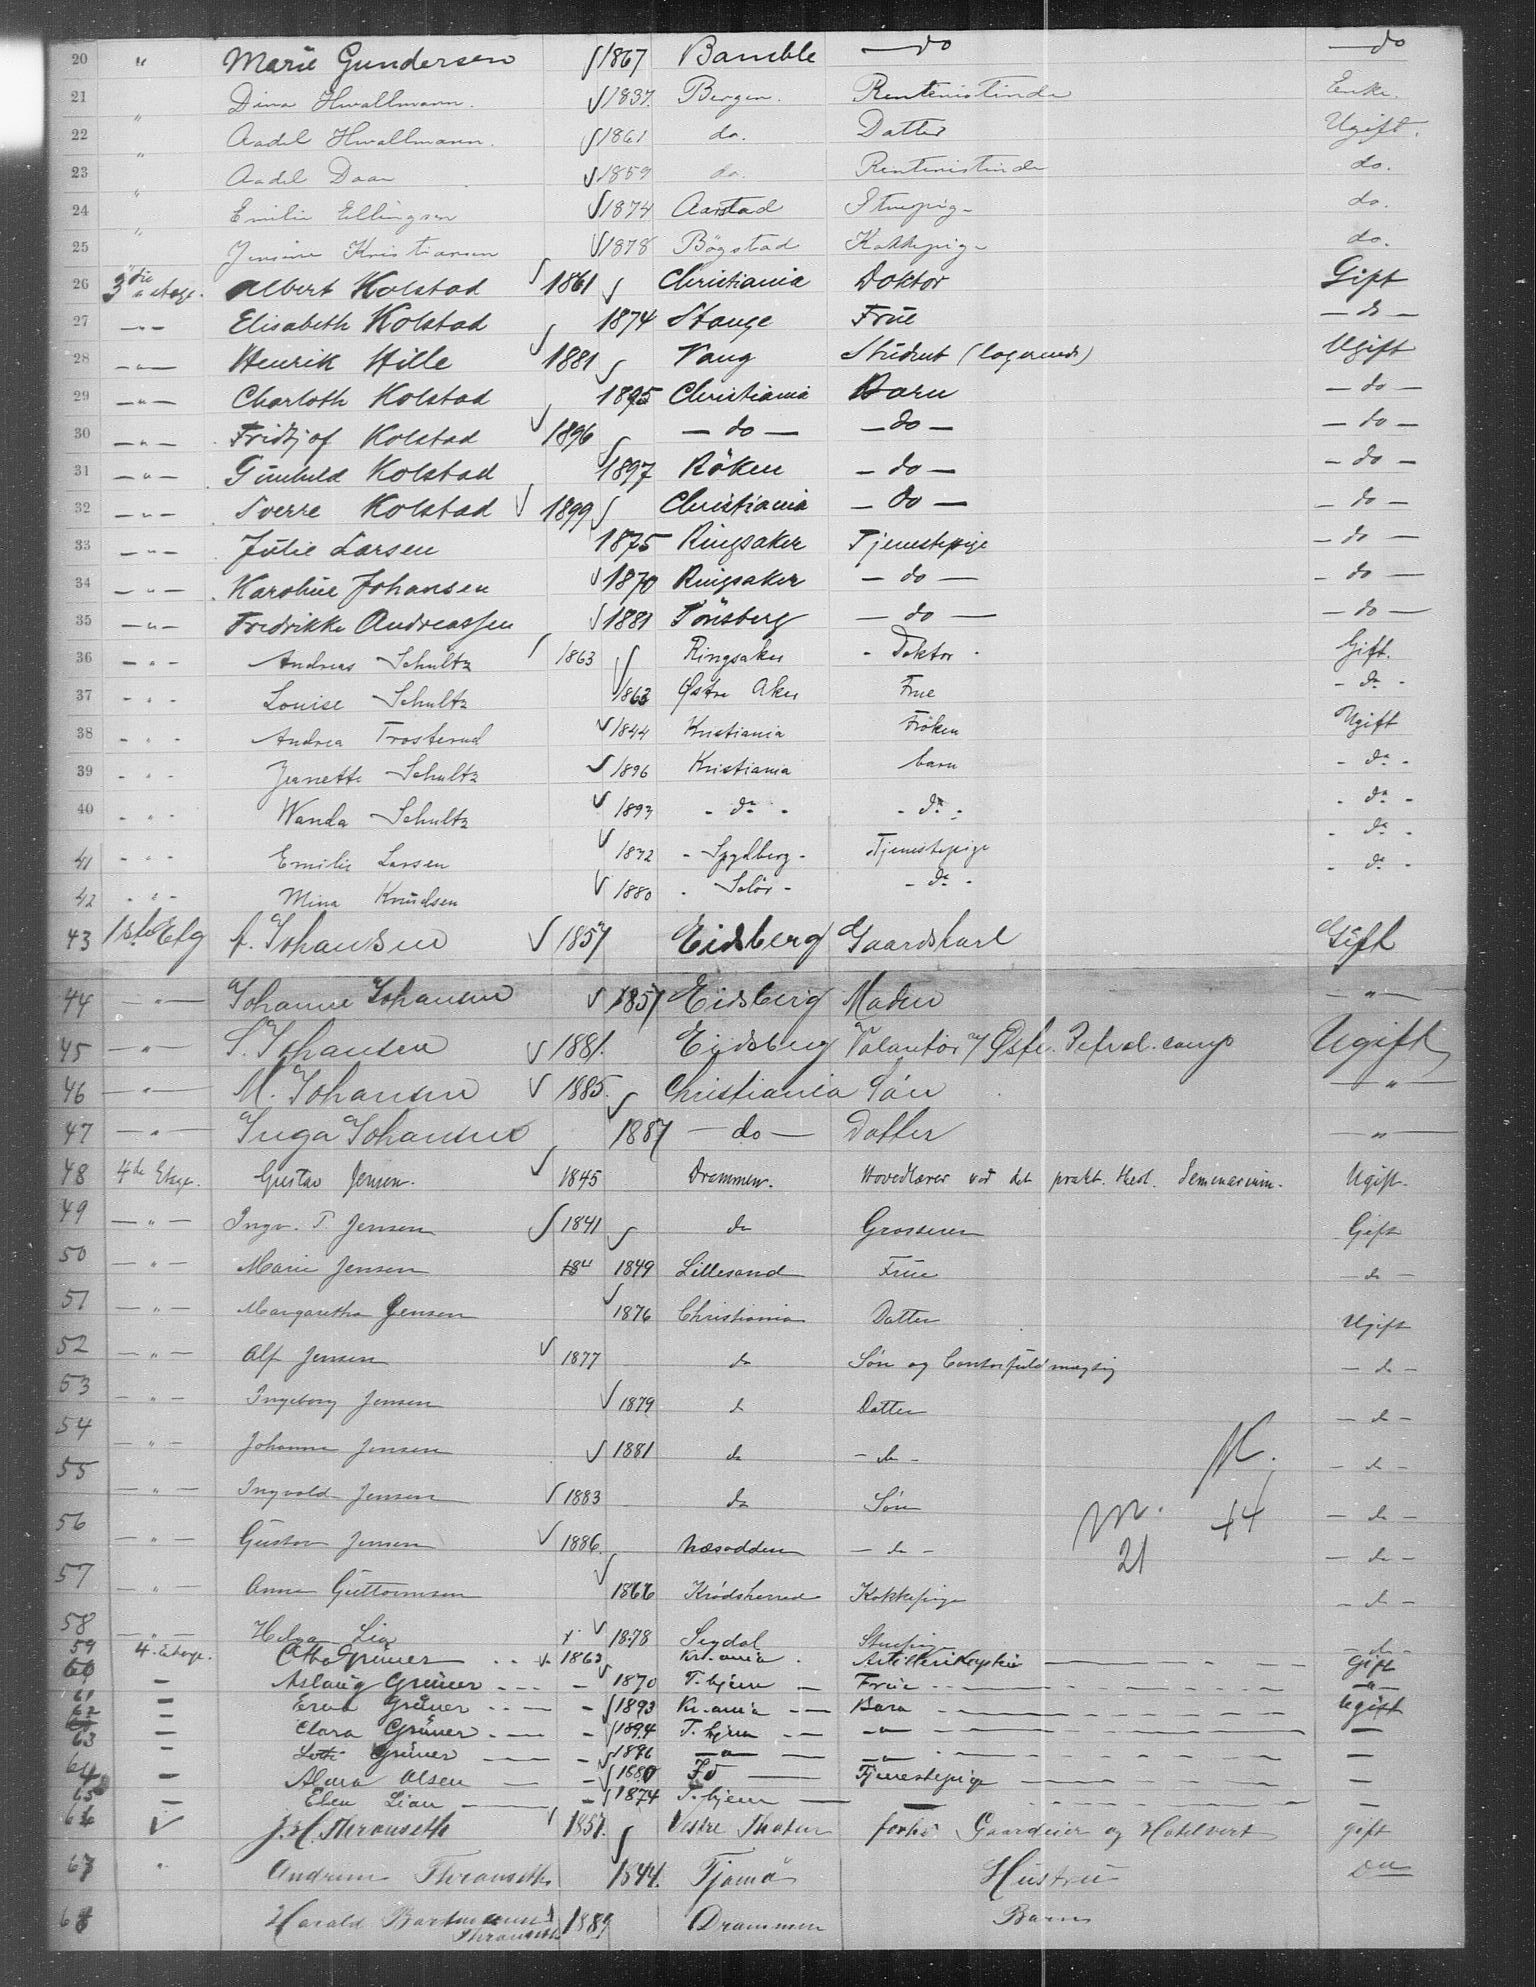 20 " Marie Gundersen 1867 Bamble — do — do
21 Dina Hwallmann. 1837. Bergen. Rentenistinde Enke.
22 " Aadel Hwallmann. 1861 do. Datter Ugift.
23 " Aadel Daae 1859 do. Rentenistinde do.
24 " Emilie Ellingsen 1874 Aarstad Stuepige do.
25 " Jensine Kristiansen 1878 Bøgstad Kokkepige do.
26 3die etage. Albert Kolstad 1861 Christiania Doktor Gift
27 — " — Elisabeth Kolstad 1874 Stange Frue — do —
28 — " — Henrik Hille 1881 Vang Student (logerende) Ugift
29 — " — Charloth Kolstad 1895 Christiania Barn — do —
30 — " — Fridtjof Kolstad 1896 — do — — do — — do —
31 — " — Gunhild Kolstad 1897 Röken — do — — do —
32 — " — Sverre Kolstad 1899 Christiania — do — — do —
33 — " — Julie Larsen 1875 Ringsaker Tjenestepige — do —
34 — " — Karoline Johansen 1870 Ringsaker — do — — do —
35 — " — Fredrikke Andreassen 1881 Tönsberg — do — — do —
36 - " - Andreas Schultz 1863 Ringsaker - Doktor - Gift.
37 - " - Louise Schultz 1863 Østre Aker Frue - do -
38 - " - Andrea Trosterud 1844 Kristiania Fröken Ugift
39 - " - Jeanette Schultz 1896 Kristiania barn - do -
40 - " - Wanda Schultz 1893 - do - - do - - do -
41 - " - Emilie Larsen 1872 - Spydberg - Tjenestepige - do -
42 - " - Mina Knudsen 1880 - Solør - - do - - do -
43 1ste Etg A. Johansen 1857 Eidsberg Gaardskarl Gift
44 — " — Johanne Johansen 1857 Eidsberg Maden — " —
45 — " — S. Johansen 1881. Eidsberg Ugift
46 — " — M. Johansen 1885. Christiania Søn — " —
47 — " — Inga Johansen 1887 — do — Datter — " —
48 4de Etage. Gustav Jensen. 1845 Drammen. Hovedlærer ved det prakt. theol. Seminarium. Ugift.
49 — " — Ingv. T. Jensen 1841 do Grosserer Gift
50 — " — Marie Jensen 1849 Lillesand Frue — do —
51 — " — Margarethe Jensen 1876 Christiania Datter Ugift
52 — " — Alf Jensen 1877 do Søn og Contorfuldmægtig — do —
53 — " — Ingeborg Jensen 1879 do Datter — do —
54 — " — Johanne Jensen 1881 do — do — — do —
55 — " — Ingvald Jensen 1883 do Søn — do —
K.
m. 44
21
56 — " — Gustav Jensen 1886 Næsodden — do — — do —
57 — " — Anne Guttormsen 1866 Krødsherred Kokkepige — do —
58 — " — Helga Lia 1878 Sigdal Stuepige — do —
59 4. Etage. Otto Grüner 1863 Kr.ania Artillerikaptein Gift
60 — Aslaug Grüner 1870 T.hjem Frue — " —
61 — Erna Grüner 1893 Kr.ania Barn Ugift
62 — Clara Grüner 1894 T.hjem — " — —
63 — Grüner 1896 — " — — " — —
64 — Olsen 1880 Tjenestepige —
65 — Ellen Lian 1874 T.hjem — —
66 J. H. Thranseth 1857. forhv. Gaardeier og Hotelvert gift
67 " Thranseth 1844. Tjømø Hustru Do
68 Harald Thranseth 1887 Drammen Barn